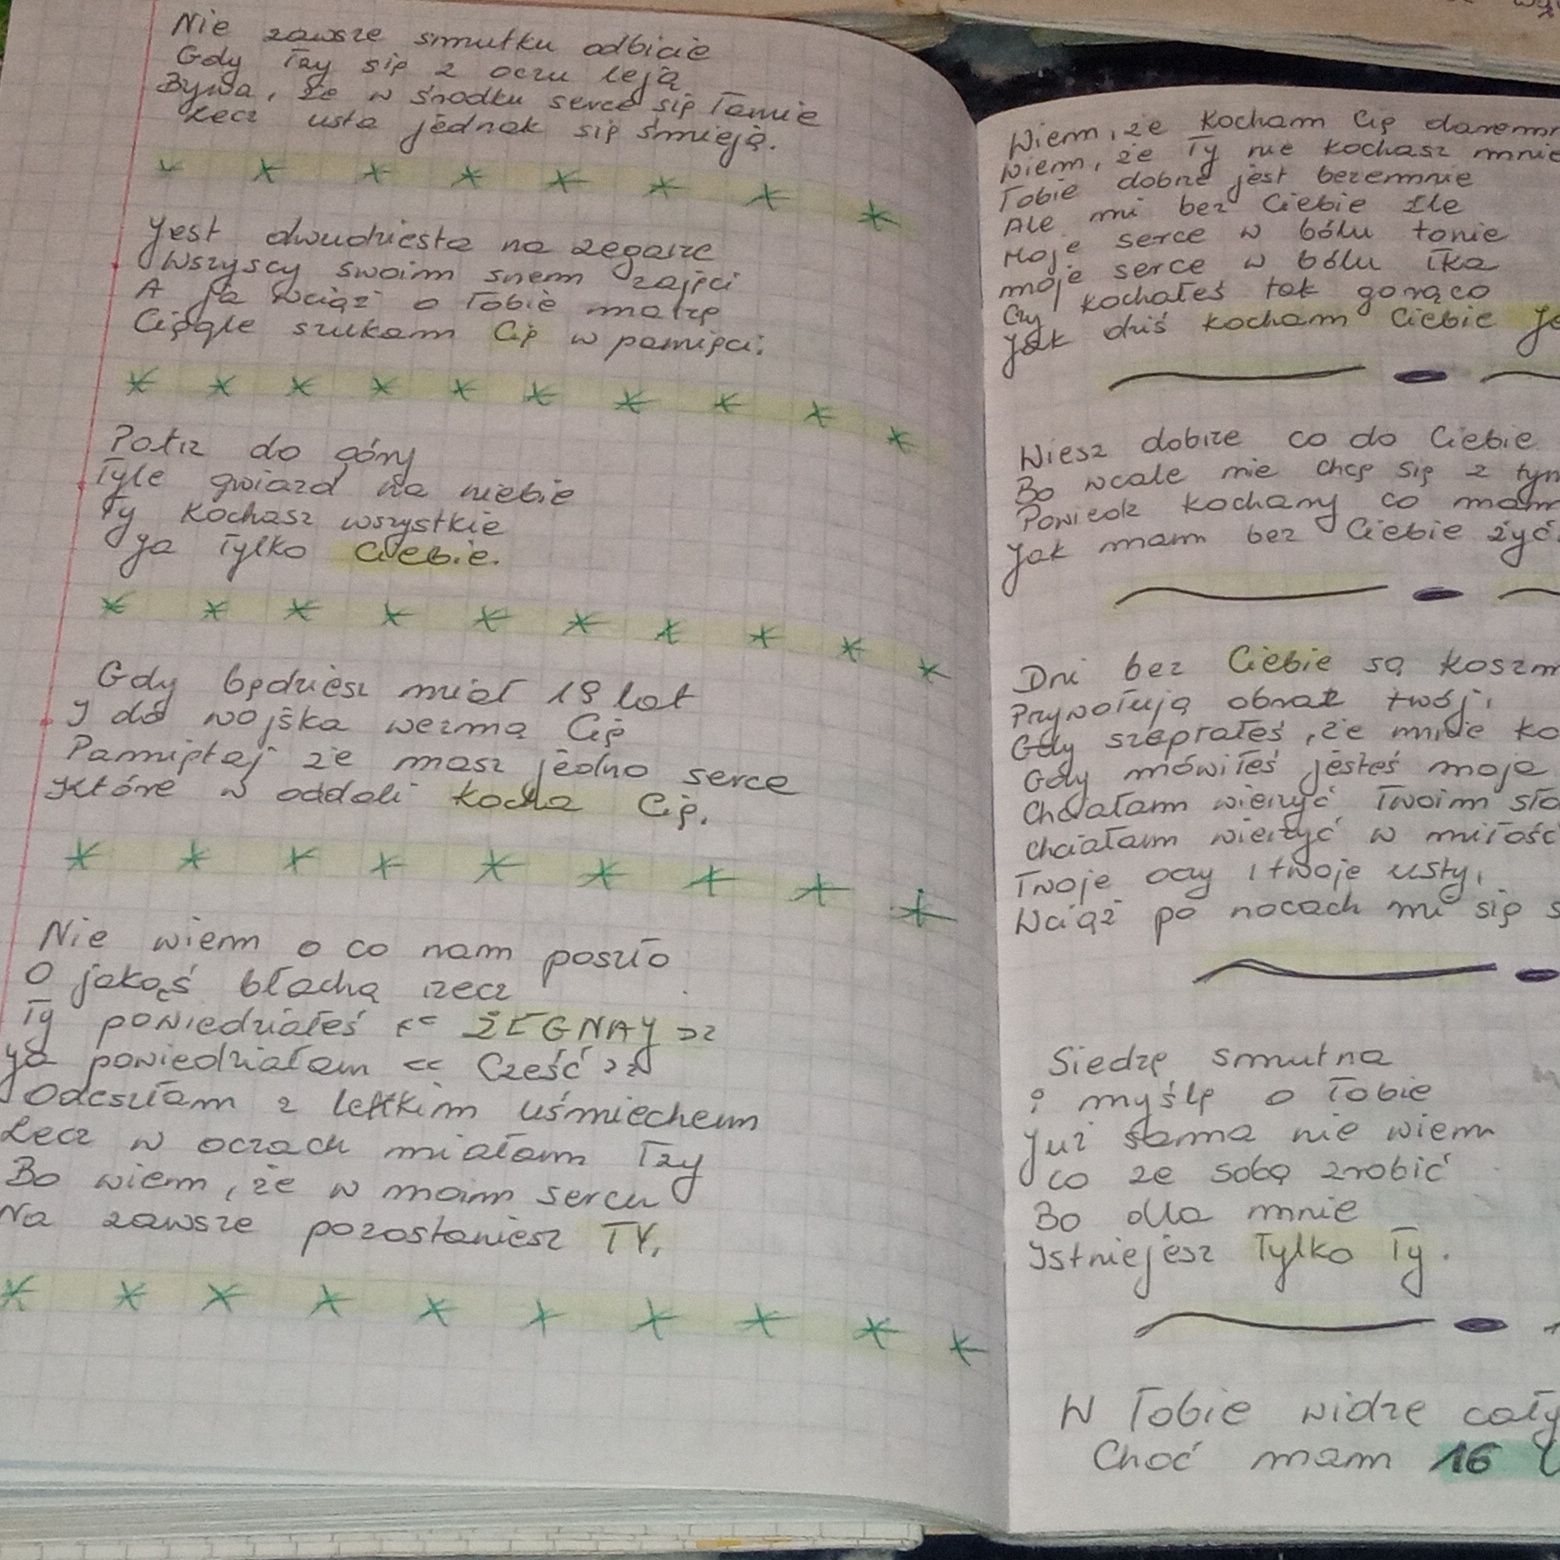 Nie zawsze smutku odbicie
Gdy łzy się z oczu leją
Bywa, że w środku serce się łamie
Lecz usta jednak się śmieją.
Jest dwudziesta na zegarze
Wszyscy swoim snem zajęci
A ja wciąż o Tobie marzę
Ciągle szukam Cię w pamięci.
Patrz do góry
Tyle gwiazd na niebie
Ty kochasz wszystkie
Ja Tylko Ciebie.
Gdy będziesz miał 19 lat
I do wojska wezmą Cię
Pamiętaj że masz jedno serce
Które w oddali kocha Cię.
Nie wiem o co nam poszło
O jakąś błachą rzecz
Ty powiedziałeś << ŻEGNAJ >>
Ja powiedziałam << Cześć >>
Odeszłam z lekkim uśmiechem
Lecz w oczach miałam łzy
Bo wiem, że w moim sercu
Na zawsze pozostaniesz TY.
Wiem, że Kocham Cię darem
Wiem, że Ty nie kochasz mnie
Tobie dobrze jest bezemnie
Ale mi bez Ciebie źle
Moje serce w bólu tonie
moje serce w bólu łka
Czy kochałeś tak gorąco
Jak dziś kocham Ciebie
Wiesz dobrze co do Ciebie
Bo wcale nie chcę się z tym
Powiedz kochany co mam
Jak mam bez Ciebie żyć.
Dni bez Ciebie są koszm
Przywołują obraz twój,
Gdy szeptałeś, że mnie ko
Gdy mówiłeś jesteś moja
Chciałam wierzyć Twoim sło
chciałam wierzyć w miłość
Twoje oczy i twoje usty,
Wciąż po nocach mi się s
Siedzę smutna
i myślę o Tobie
Już sama nie wiem
co ze sobą zrobić
Bo dla mnie
Istniejesz Tylko Ty.
W Tobie widzę cały
Choć mam 16